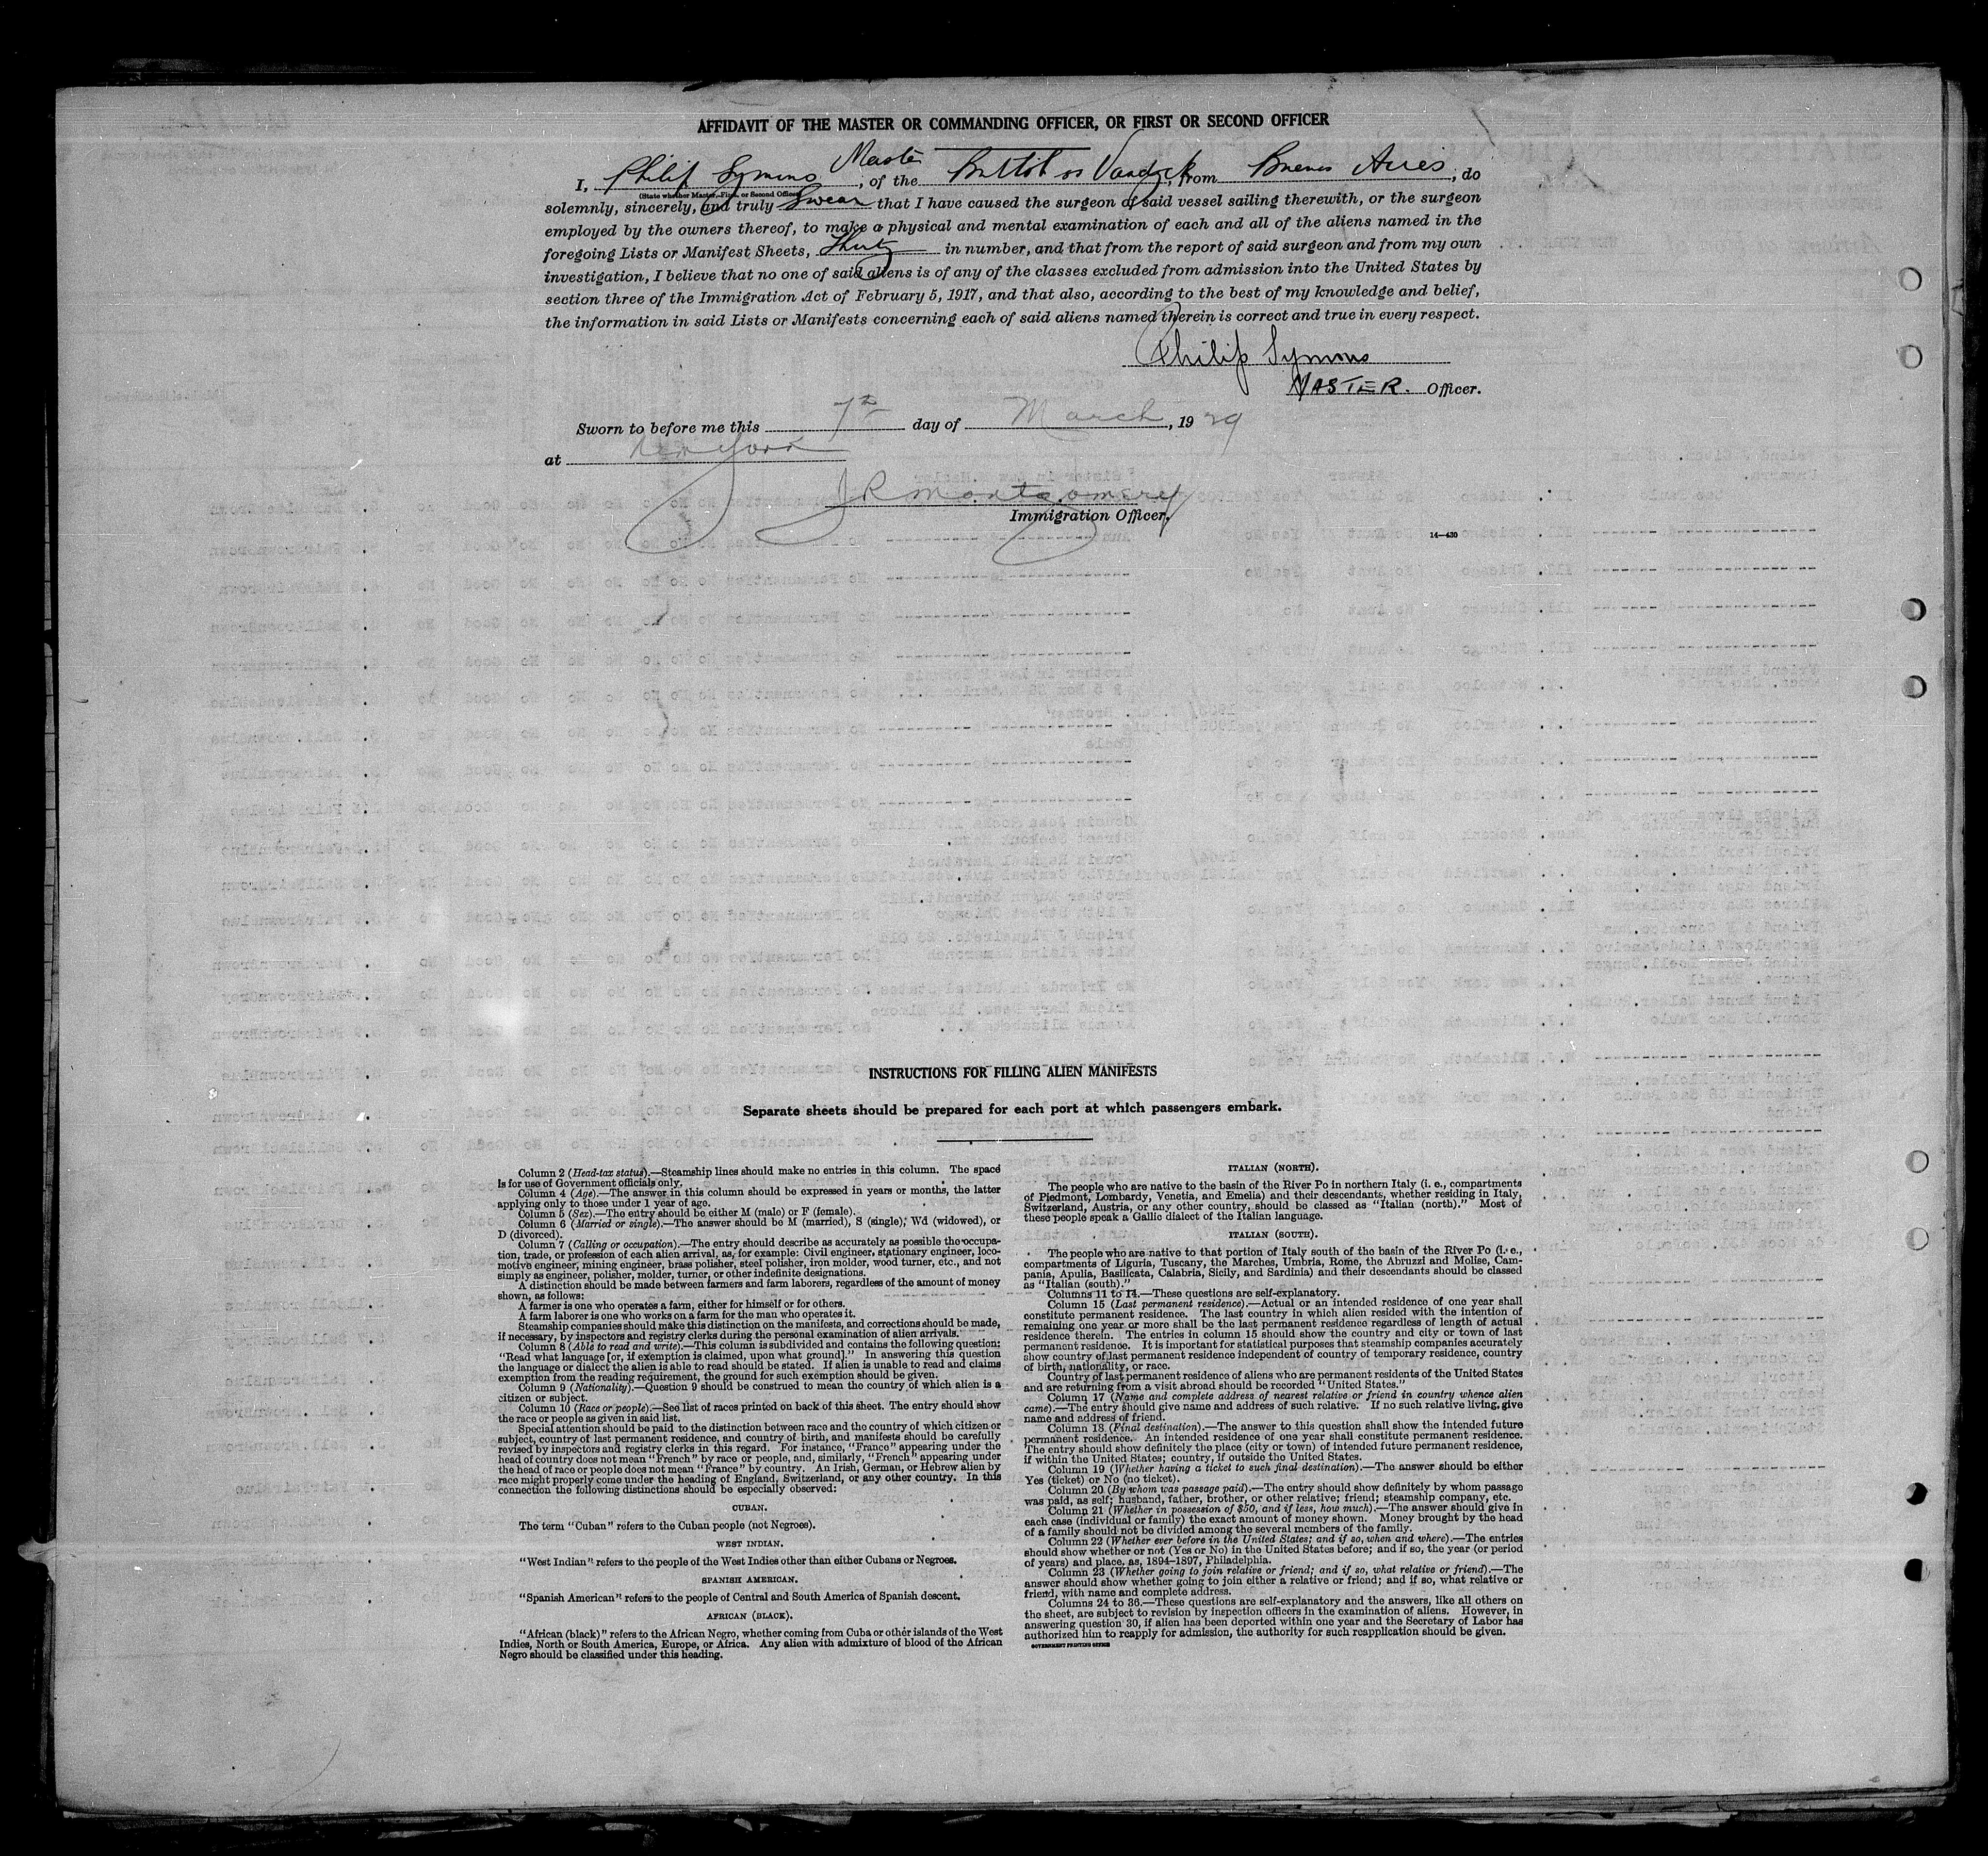 AFFIDAVIT OF THE MASTER OR COMMANDING OFFICER, OR FIRST OR SECOND OFFICER
I, Philip Symons Master, of the British ss Vandyck, from Buenos Aires, do
(State whether Master, First, or Second Officer)
solemnly, sincerely, and truly Swear that I have caused the surgeon of said vessel sailing therewith, or the surgeon
employed by the owners thereof, to make a physical and mental examination of each and all of the aliens named in the
foregoing Lists or Manifest Sheets, Thirty in number, and that from the report of said surgeon and from my own
investigation, I believe that no one of said aliens is of any of the classes excluded from admission into the United States by
section three of the Immigration Act of February 5, 1917, and that also, according to the best of my knowledge and belief,
the information in said Lists or Manifests concerning each of said aliens named therein is correct and true in every respect.
Philip Symons
MASTER. Officer.
Sworn to before me this 7th day of March, 1929
at New York
J R Montgomery
Immigration Officer.
14—430
INSTRUCTIONS FOR FILLING ALIEN MANIFESTS
Separate sheets should be prepared for each port at which passengers embark.
Column 2 (Head-tax status).—Steamship lines should make no entries in this column. The space
is for use of Government officials only.
Column 4 (Age).—The answer in this column should be expressed in years or months, the latter
applying only to those under 1 year of age.
Column 5 (Sex).—The entry should be either M (male) or F (female).
Column 6 (Married or single).—The answer should be M (married), S (single), Wd (widowed), or
D (divorced).
Column 7 (Calling or occupation).—The entry should describe as accurately as possible the occupa-
tion, trade, or profession of each alien arrival, as, for example: Civil engineer, stationary engineer, loco-
motive engineer, mining engineer, brass polisher, steel polisher, iron molder, wood turner, etc., and not
simply as engineer, polisher, molder, turner, or other indefinite designations.
A distinction should be made between farmers and farm laborers, regardless of the amount of money
shown, as follows:
A farmer is one who operates a farm, either for himself or for others.
A farm laborer is one who works on a farm for the man who operates it.
Steamship companies should make this distinction on the manifests, and corrections should be made,
if necessary, by inspectors and registry clerks during the personal examination of alien arrivals.
Column 8 (Able to read and write).—This column is subdivided and contains the following question:
"Read what language [or, if exemption is claimed, upon what ground]." In answering this question
the language or dialect the alien is able to read should be stated. If alien is unable to read and claims
exemption from the reading requirement, the ground for such exemption should be given.
Column 9 (Nationality).—Question 9 should be construed to mean the country of which alien is a
citizen or subject.
Column 10 (Race or people).—See list of races printed on back of this sheet. The entry should show
the race or people as given in said list.
Special attention should be paid to the distinction between race and the country of which citizen or
subject, country of last permanent residence, and country of birth, and manifests should be carefully
revised by inspectors and registry clerks in this regard. For instance, "France" appearing under the
head of country does not mean "French" by race or people, and, similarly, "French" appearing under
the head of race or people does not mean "France" by country. An Irish, German, or Hebrew alien by
race might properly come under the heading of England, Switzerland, or any other country. In this
connection the following distinctions should be especially observed:
CUBAN.
The term "Cuban" refers to the Cuban people (not Negroes).
WEST INDIAN.
"West Indian" refers to the people of the West Indies other than either Cubans or Negroes.
SPANISH AMERICAN.
"Spanish American" refers to the people of Central and South America of Spanish descent.
AFRICAN (BLACK).
"African (black)" refers to the African Negro, whether coming from Cuba or other islands of the West
Indies, North or South America, Europe, or Africa. Any alien with admixture of blood of the African
Negro should be classified under this heading.
ITALIAN (NORTH).
The people who are native to the basin of the River Po in northern Italy (i. e., compartments
of Piedmont, Lombardy, Venetia, and Emelia) and their descendants, whether residing in Italy,
Switzerland, Austria, or any other country, should be classed as "Italian (north)." Most of
these people speak a Gallic dialect of the Italian language.
ITALIAN (SOUTH).
The people who are native to that portion of Italy south of the basin of the River Po (i. e.,
compartments of Liguria, Tuscany, the Marches, Umbria, Rome, the Abruzzi and Molise, Cam-
pania, Apulia, Basilicata, Calabria, Sicily, and Sardinia) and their descendants should be classed
as "Italian (south)."
Columns 11 to 14.—These questions are self-explanatory.
Column 15 (Last permanent residence).—Actual or an intended residence of one year shall
constitute permanent residence. The last country in which alien resided with the intention of
remaining one year or more shall be the last permanent residence regardless of length of actual
residence therein. The entries in column 15 should show the country and city or town of last
permanent residence. It is important for statistical purposes that steamship companies accurately
show country of last permanent residence independent of country of temporary residence, country
of birth, nationality, or race.
Country of last permanent residence of aliens who are permanent residents of the United States
and are returning from a visit abroad should be recorded "United States."
Column 17 (Name and complete address of nearest relative or friend in country whence alien
came).—The entry should give name and address of such relative. If no such relative living, give
name and address of friend.
Column 18 (Final destination).—The answer to this question shall show the intended future
permanent residence. An intended residence of one year shall constitute permanent residence.
The entry should show definitely the place (city or town) of intended future permanent residence,
if within the United States; country, if outside the United States.
Column 19 (Whether having a ticket to such final destination).—The answer should be either
Yes (ticket) or No (no ticket).
Column 20 (By whom was passage paid).—The entry should show definitely by whom passage
was paid, as self; husband, father, brother, or other relative; friend; steamship company, etc.
Column 21 (Whether in possession of $50, and if less, how much).—The answer should give in
each case (individual or family) the exact amount of money shown. Money brought by the head
of a family should not be divided among the several members of the family.
Column 22 (Whether ever before in the United States; and if so, when and where).—The entries
should show whether or not (Yes or No) in the United States before; and if so, the year (or period
of years) and place, as, 1894–1897, Philadelphia.
Column 23 (Whether going to join relative or friend; and if so, what relative or friend).—The
answer should show whether going to join either a relative or friend; and if so, what relative or
friend, with name and complete address.
Columns 24 to 36.—These questions are self-explanatory and the answers, like all others on
the sheet, are subject to revision by inspection officers in the examination of aliens. However, in
answering question 30, if alien has been deported within one year and the Secretary of Labor has
authorized him to reapply for admission, the authority for such reapplication should be given.
GOVERNMENT PRINTING OFFICE